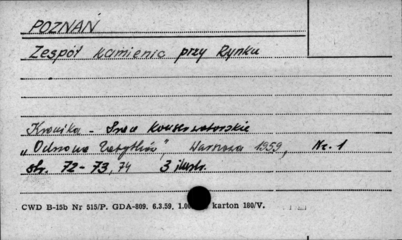 POZNAŃ
Zespół kamienic przy Rynku
Kronika - Prace konserwatorskie
"Ochrona Zabytków", Warszawa 1959, Nr. 1
str. 72-73, 74 3 ilustr.
CWD B-15b Nr 515/P. GDA-809. 6.3.59. 1.00 karton 180/V.